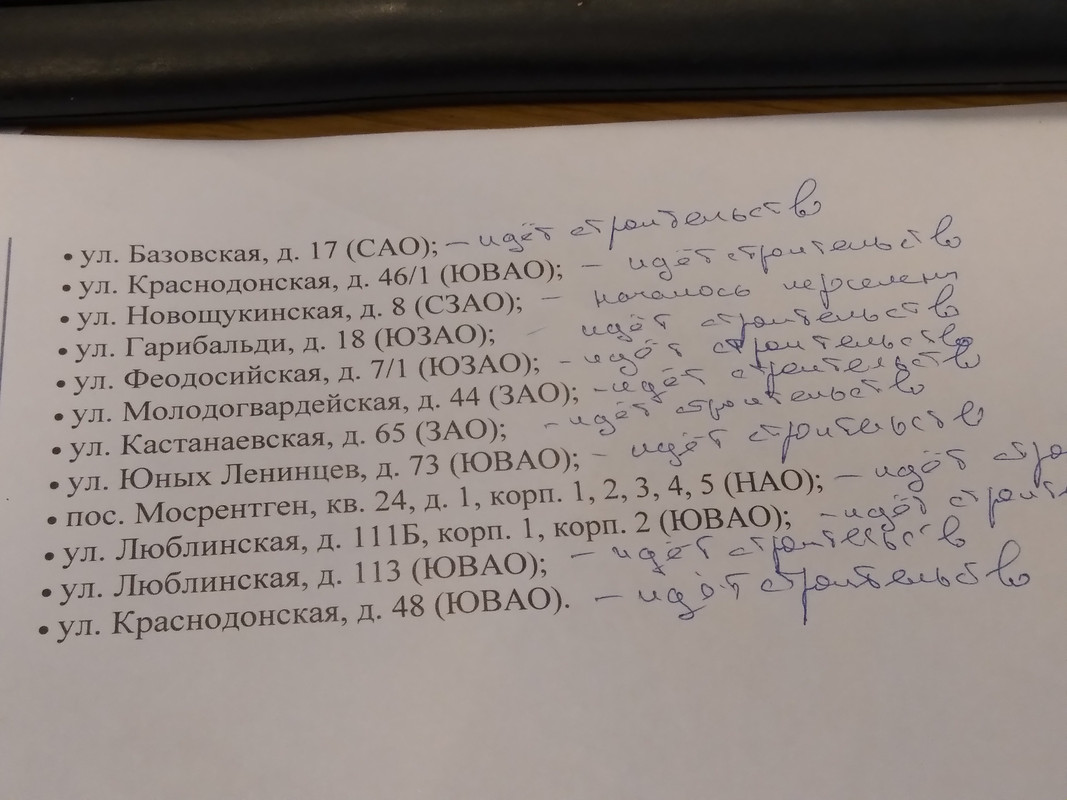 • ул. Базовская, д. 17 (САО); – идёт строительство
• ул. Краснодонская, д. 46/1 (ЮВАО); – идёт строительство
• ул. Новощукинская, д. 8 (СЗАО); – началось
• ул. Гарибальди, д. 18 (ЮЗАО); – идёт строительство
• ул. Феодосийская, д. 7/1 (ЮЗАО); – идёт строительство
• ул. Молодогвардейская, д. 44 (ЗАО); – идёт строительство
• ул. Кастанаевская, д. 65 (ЗАО); – идёт строительство
• ул. Юных Ленинцев, д. 73 (ЮВАО); – идёт строительство
• пос. Мосрентген, кв. 24, д. 1, корп. 1, 2, 3, 4, 5 (НАО); – идёт стро
• ул. Люблинская, д. 111Б, корп. 1, корп. 2 (ЮВАО); – идёт строите
• ул. Люблинская, д. 113 (ЮВАО); – идёт строительство
• ул. Краснодонская, д. 48 (ЮВАО). – идёт строительство